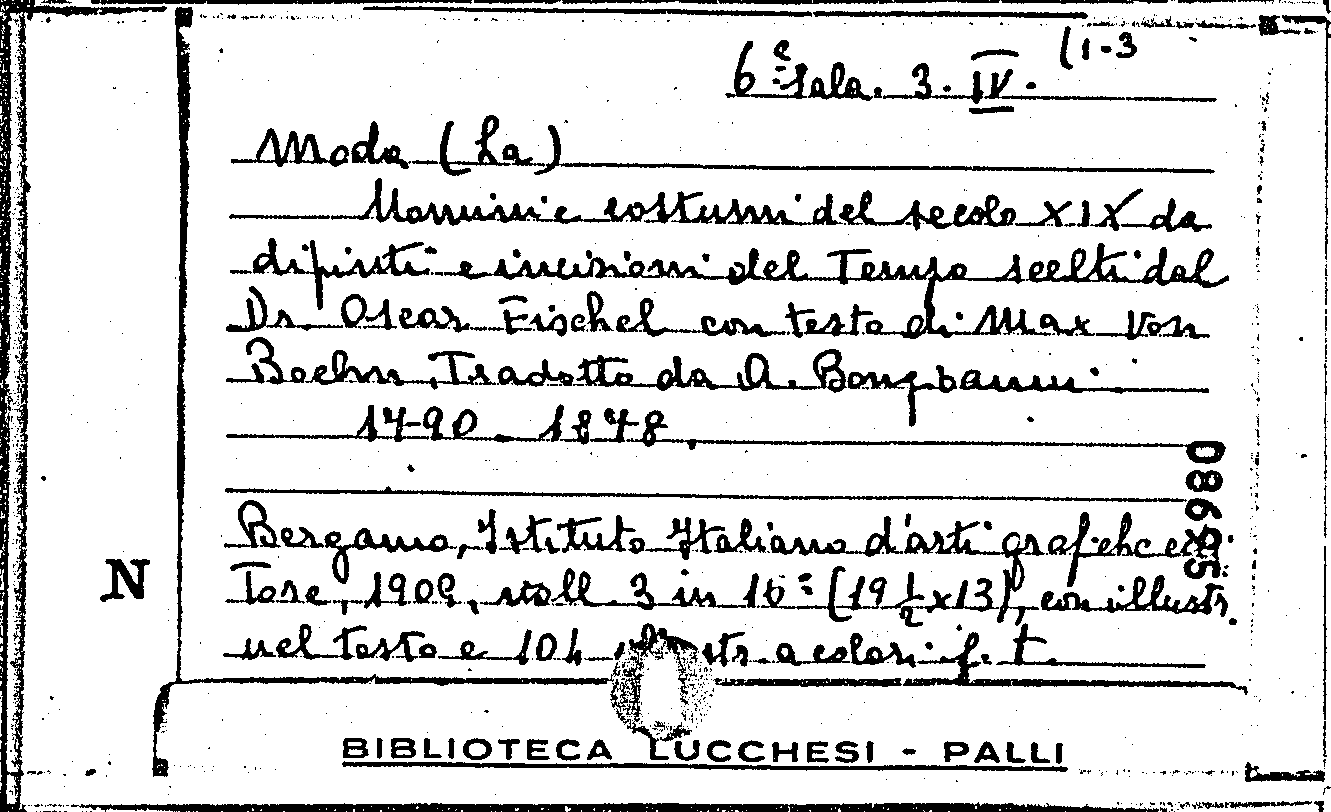 6ª Sala. 3. IV. (1-3
Moda (La)
Uomini e costumi del secolo XIX da
dipinti e incisioni del Tempo scelti dal
Dr. Oscar Fischel con testo di Max Von
Boehn. Tradotto da A. Bongioanni.
1790 - 1848.
08695
Bergamo, Istituto Italiano d'arti grafiche edi-
tore, 1909, voll. 3 in 16º (19 1/2 x 13), con illustr.
nel testo e 104 illustr. a colori f. t.
N
BIBLIOTECA LUCCHESI - PALLI